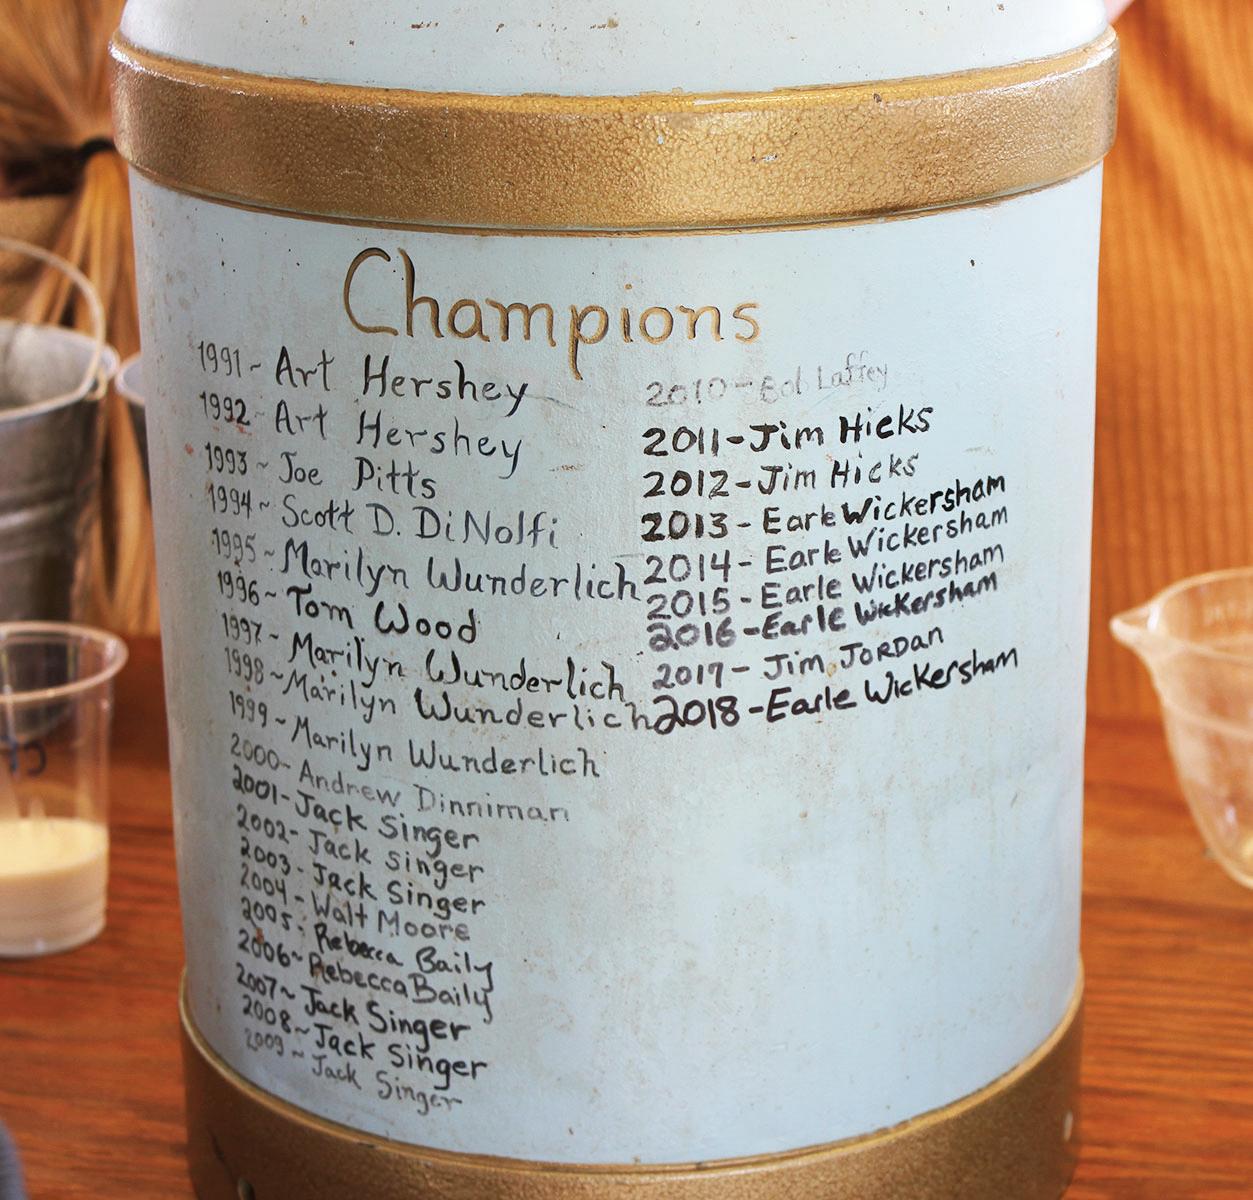 Champions
1991~ Art Hershey
1992~ Art Hershey
1993~ Joe Pitts
1994~ Scott D. DiNolfi
1995~ Marilyn Wunderlich
1996~ Tom Wood
1997~ Marilyn Wunderlich
1998~ Marilyn Wunderlich
1999~ Marilyn Wunderlich
2000- Andrew Dinniman
2001- Jack Singer
2002- Jack singer
2003- Jack Singer
2004- Walt Moore
2005- Rebecca Baily
2006~ Rebecca Baily
2007~ Jack Singer
2008~ Jack Singer
2009~ Jack Singer
2010- Bob Laffey
2011-Jim Hicks
2012-Jim Hicks
2013- Earle Wickersham
2014- Earle Wickersham
2015- Earle Wickersham
2016-Earle Wickersham
2017- Jim Jordan
2018-Earle Wickersham